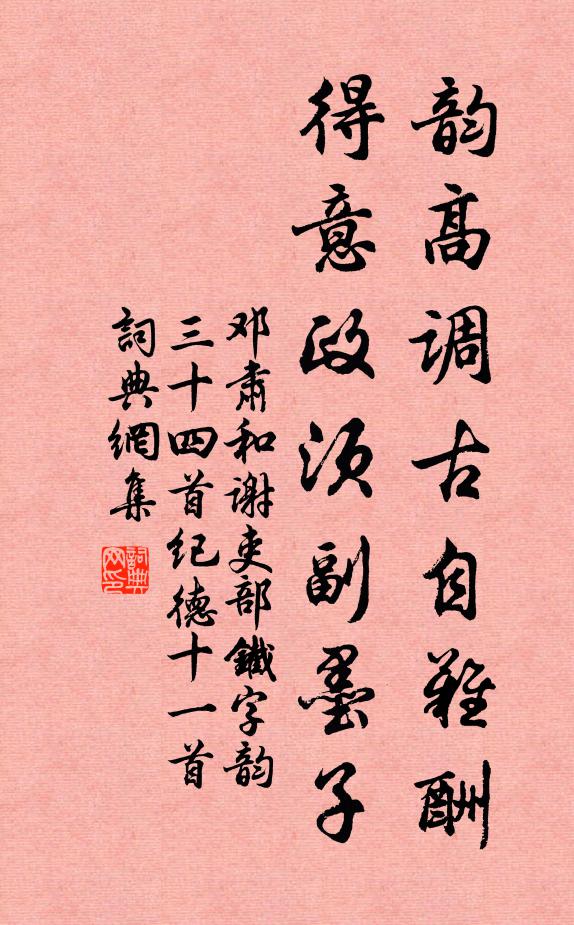 韵高调古自难酬
得意政须副墨子
邓肃和谢吏部鐵字韵
三十四首纪德十一首
詞典網集
詞典网印